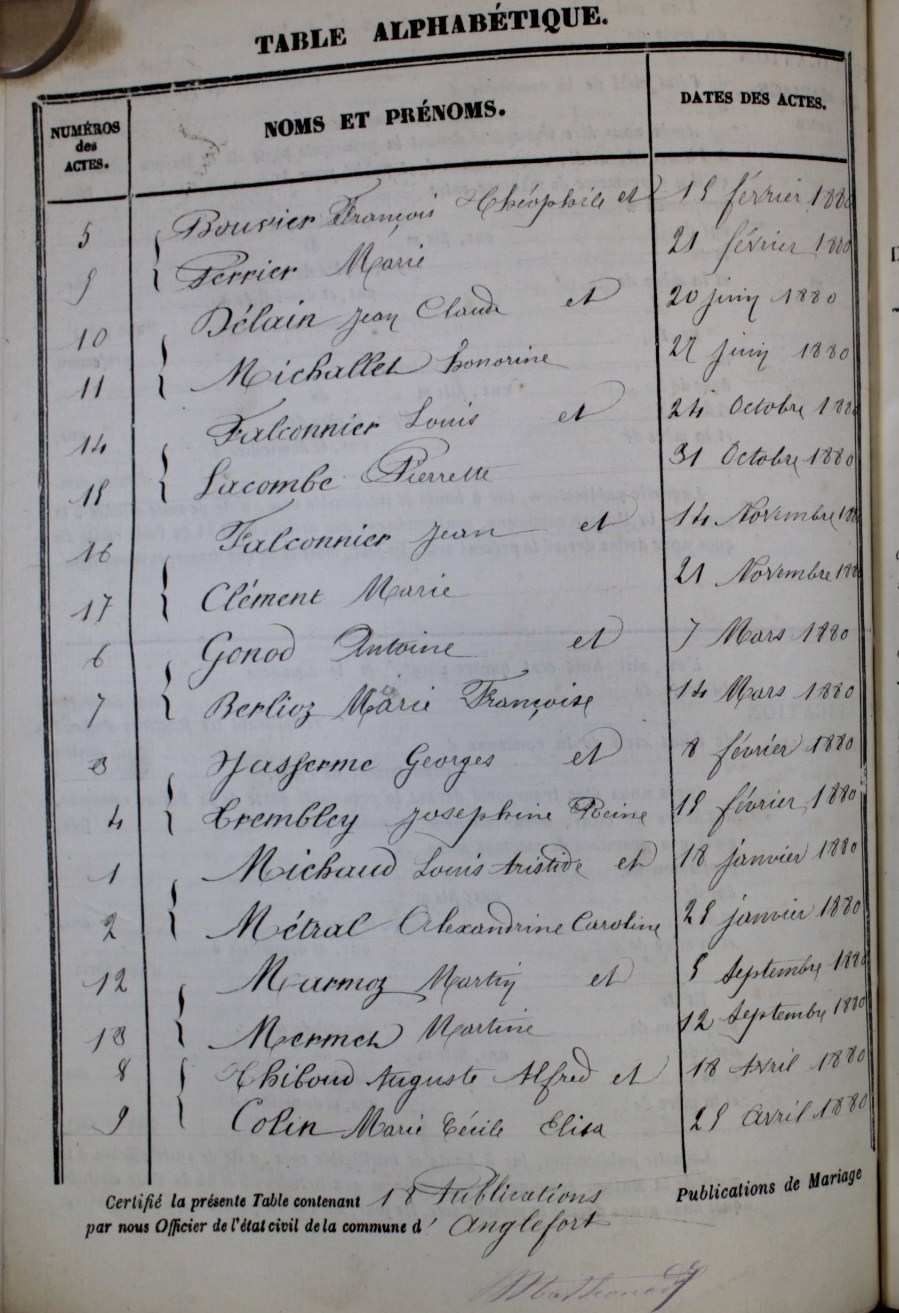 TABLE ALPHABÉTIQUE.
NUMÉROS des ACTES. NOMS ET PRÉNOMS. DATES DES ACTES.
5 Bouvier François Théophile et 15 février 1880
9 Perrier Marie 21 février 1880
10 Délain Jean Claude et 20 juin 1880
11 Michallet honorine 27 juin 1880
14 Falconnier Louis et 24 Octobre 1880
15 Lacombe Pierrette 31 Octobre 1880
16 Falconnier Jean et 14 Novembre 1880
17 Clément Marie 21 Novembre 1880
6 Gonod Antoine et 7 Mars 1880
7 Berlioz Marie Françoise 14 Mars 1880
3 Georges et 8 février 1880
4 Trembley Josephine Reine 15 février 1880
1 Michaud Louis Aristide et 18 janvier 1880
2 Métral Alexandrine Caroline 25 janvier 1880
12 Marmoz Martin et 5 Septembre 1880
13 Mermet Martine 12 Septembre 1880
8 Thiboud Auguste Alfred et 18 Avril 1880
9 Colin Marie Cécile Elisa 25 Avril 1880
Certifié la présente Table contenant 18 Publications Publications de Mariage
par nous Officier de l'état civil de la commune d' Anglefort